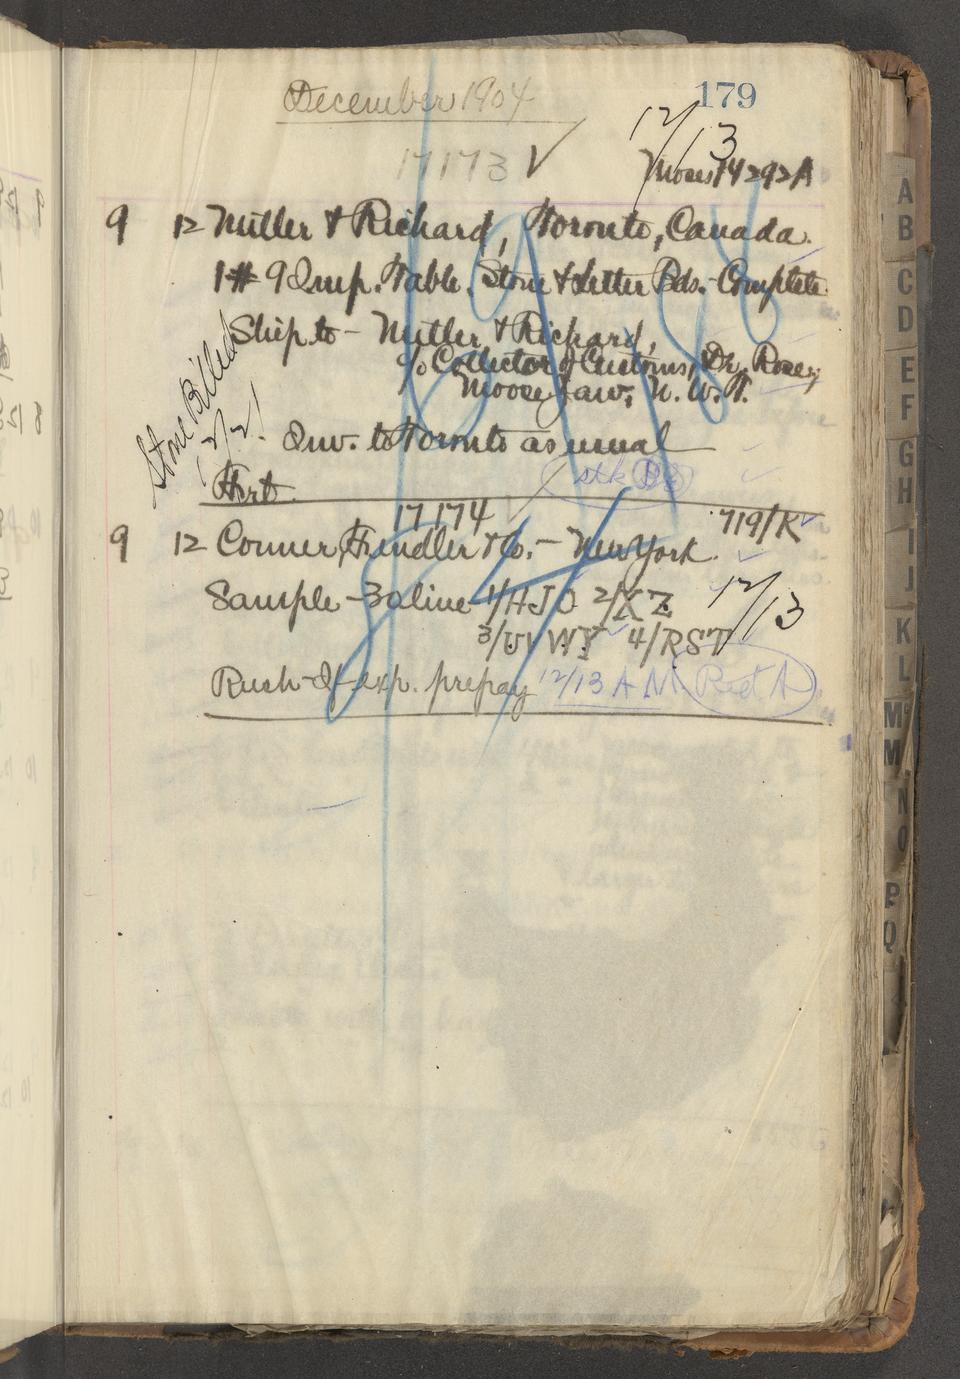 December 1904
179
12/13
17173 ✓
Moors 14292A
9 12 Miller & Richard, Toronto, Canada.
1 # 9 Imp. Table. Stone & Letter Bds. Complete
Ship to - Miller & Richard,
c/o Collector of Customs,
Moose Jaw, N. W. T.
Stone Billed
12/21
Inv. to Toronto as usual
stk
17174
719/K
9 12 Conner, Fendler & Co. - New York.
Sample - 3 aline 1/HJO 2/XZ
12/13
3/UVWY 4/RST
Rush - If exp. prepay 12/13 A M.
A
B
C
D
E
F
G
H
I
J
K
L
M
M
N
O
P
Q